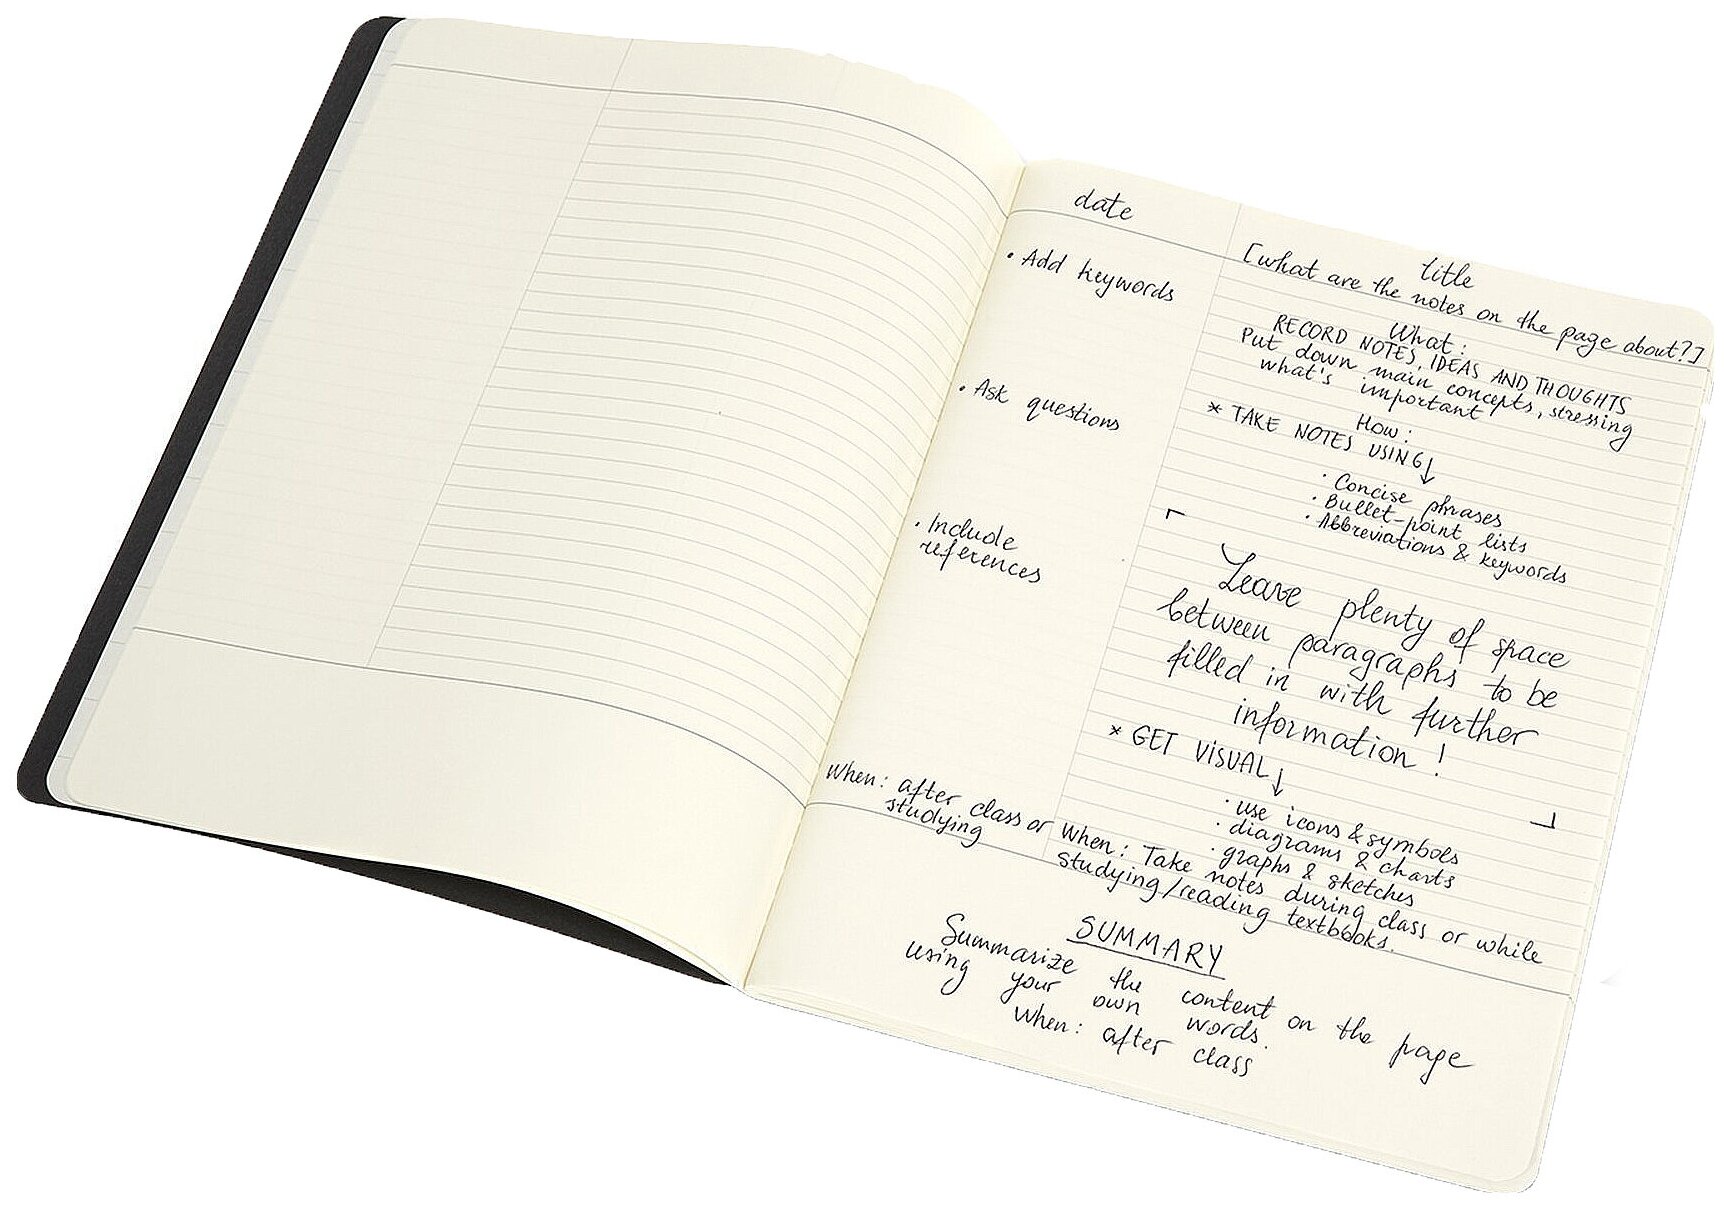 date
• Add keywords
• Ask questions
• Include
references
When: after class or
studying
title
[what are the notes on the page about?]
What:
RECORD NOTES, IDEAS AND THOUGHTS
Put down main concepts, stressing
what's important
How:
* TAKE NOTES USING ↓
• Concise phrases
• Bullet-point lists
• Abbreviations & keywords
Leave plenty of space
between paragraphs to be
filled in with further
information!
* GET VISUAL ↓
• use icons & symbols
• diagrams & charts
• graphs & sketches
When: Take notes during class or while
studying/reading textbooks.
SUMMARY
Summarize the content on the page
using your own words.
When: after class